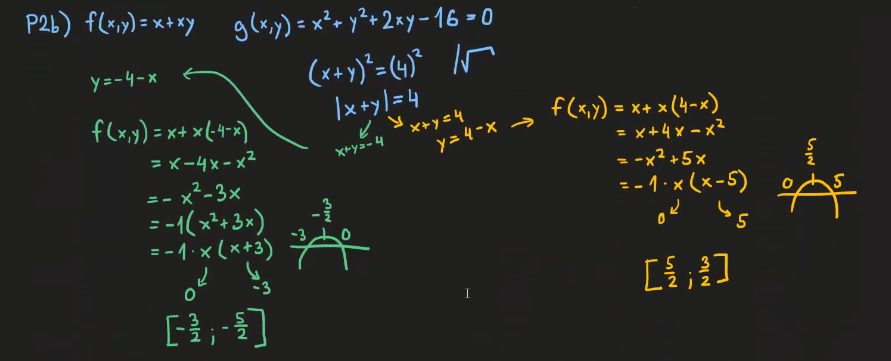 P2b) f(x,y) = x+xy g(x,y) = x²+y²+2xy-16=0
(x+y)²=(4)² /√
|x+y|=4
x+y=-4
x+y=4
y=4-x
y=-4-x
f(x,y) = x+x(-4-x)
= x-4x-x²
= -x²-3x
= -1(x²+3x)
= -1·x(x+3)
0 -3
-3 -3/2 0
[-3/2 ; -5/2]
f(x,y) = x+x(4-x)
= x+4x-x²
= -x²+5x
= -1·x(x-5)
0 5
0 5/2 5
[5/2 ; 3/2]